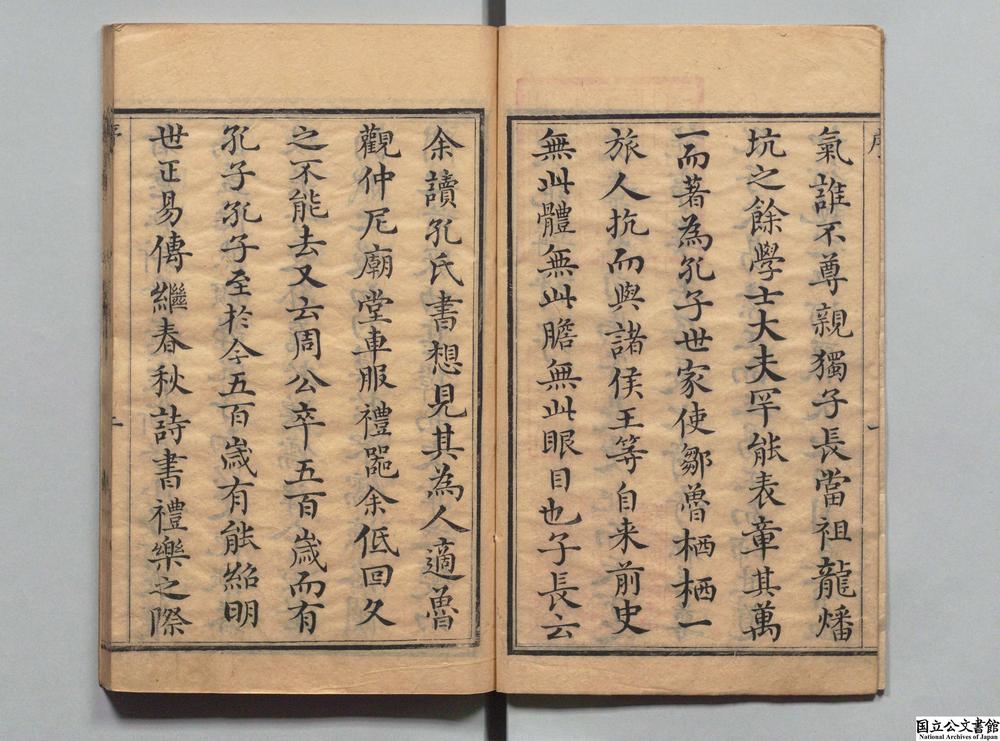 氣誰不尊親獨子長當祖龍燔
坑之餘學士大夫罕能表章其萬
一而著為孔子世家使鄒魯栖栖一
旅人抗而與諸侯王等自来前史
無此體無此膽無此眼目也子長云
余讀孔氏書想見其為人適魯
觀仲尼廟堂車服禮器余低回久
之不能去又云周公卒五百歲而有
孔子孔子至於今五百歲有能紹明
世正易傳繼春秋詩書禮樂之際
国立公文書館
National Archives of Japan